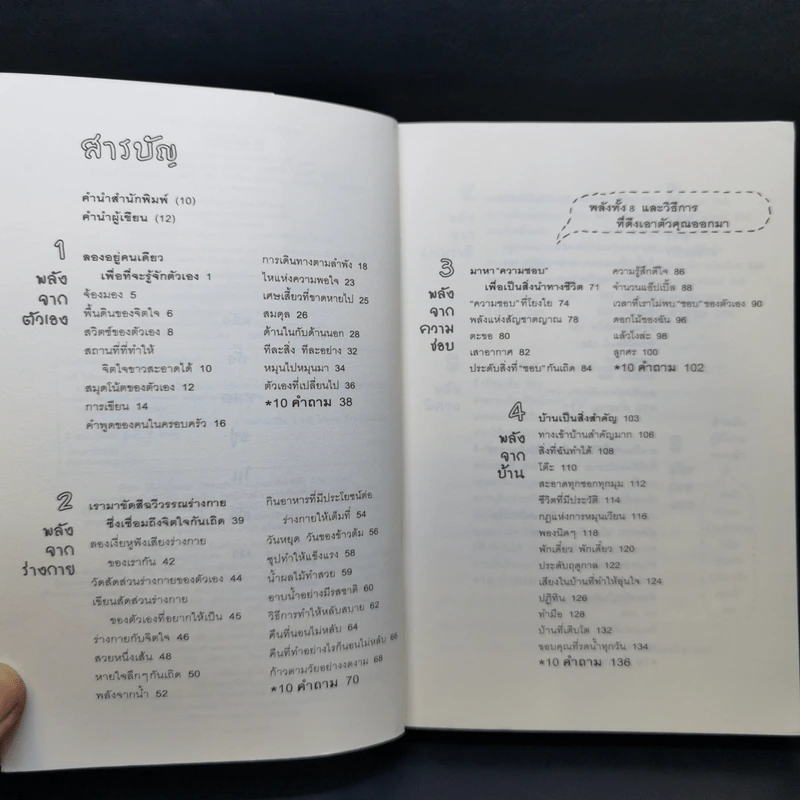 สารบัญ
คำนำสำนักพิมพ์ (10)
คำนำผู้เขียน (12)
1
พลัง
จาก
ตัวเอง
ลองอยู่คนเดียว
เพื่อที่จะรู้จักตัวเอง 1
จ้องมอง 5
พื้นดินของจิตใจ 6
สวิตช์ของตัวเอง 8
สถานที่ที่ทำให้
จิตใจขาวสะอาดได้ 10
สมุดโน้ตของตัวเอง 12
การเขียน 14
คำพูดของคนในครอบครัว 16
การเดินทางตามลำพัง 18
ไหแห่งความพอใจ 23
เศษเสี้ยวที่ขาดหายไป 25
สมดุล 26
ด้านในกับด้านนอก 28
ทีละสิ่ง ทีละอย่าง 32
หมุนไปหมุนมา 34
ตัวเองที่เปลี่ยนไป 36
*10 คำถาม 38
2
พลัง
จาก
ร่างกาย
เรามาขัดสีฉวีวรรณร่างกาย
ซึ่งเชื่อมถึงจิตใจกันเถิด 39
ลองเงี่ยหูฟังเสียงร่างกาย
ของเรากัน 42
วัดสัดส่วนร่างกายของตัวเอง 44
เขียนสัดส่วนร่างกาย
ของตัวเองที่อยากให้เป็น 45
ร่างกายกับจิตใจ 46
สวยหนึ่งเส้น 48
หายใจลึกๆกันเถิด 50
พลังจากน้ำ 52
กินอาหารที่มีประโยชน์ต่อ
ร่างกายให้เต็มที่ 54
วันหยุด วันของข้าวต้ม 56
ซุปทำให้แข็งแรง 58
น้ำผลไม้ทำสวย 59
อาบน้ำอย่างมีรสชาติ 60
วิธีการทำให้หลับสบาย 62
คืนที่นอนไม่หลับ 64
คืนที่ทำอย่างไรก็นอนไม่หลับ 66
ก้าวตามวัยอย่างงดงาม 68
*10 คำถาม 70
พลังทั้ง 8 และวิธีการ
ที่ดึงเอาตัวคุณออกมา
3
พลัง
จาก
ความ
ชอบ
มาหา "ความชอบ"
เพื่อเป็นสิ่งนำทางชีวิต 71
"ความชอบ" ที่โยงใย 74
พลังแห่งสัญชาตญาณ 78
ตะขอ 80
เสาอากาศ 82
ประดับสิ่งที่ "ชอบ" กันเถิด 84
ความรู้สึกดีใจ 86
จำนวนแอ๊ปเปิ้ล 88
เวลาที่เราไม่พบ "ชอบ" ของตัวเอง 90
ดอกไม้ของฉัน 96
แล้วโงล่ะ 98
ลูกศร 100
*10 คำถาม 102
4
พลัง
จาก
บ้าน
บ้านเป็นสิ่งสำคัญ 103
ทางเข้าบ้านสำคัญมาก 106
สิ่งที่ฉันทำได้ 108
โต๊ะ 110
สะอาดทุกซอกทุกมุม 112
ชีวิตที่มีประวัติ 114
กฎแห่งการหมุนเวียน 116
พองนิดๆ 118
พักเดี๋ยว พักเดี๋ยว 120
ประดับฤดูกาล 122
เสียงในบ้านที่ทำให้อุ่นใจ 124
ปฏิทิน 126
ทำมือ 128
บ้านที่เติบโต 132
ขอบคุณที่รดน้ำทุกวัน 134
*10 คำถาม 136